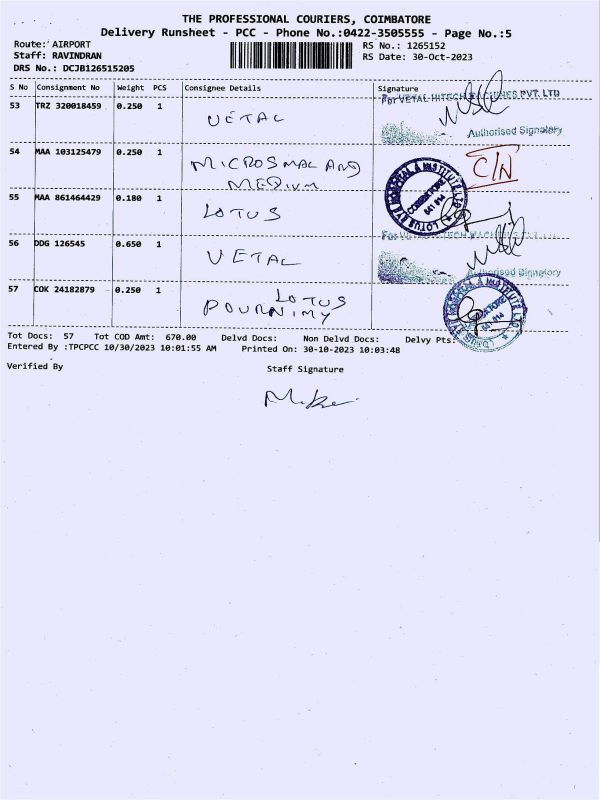 THE PROFESSIONAL COURIERS, COIMBATORE
Delivery Runsheet - PCC - Phone No.:0422-3505555 - Page No.:5
Route: AIRPORT
RS No.: 1265152
Staff: RAVINDRAN
RS Date: 30-Oct-2023
DRS No.: DCJB126515205
S No Consignment No Weight PCS Consignee Details Signature
53 TRZ 320018459 0.250 1 VETAL
For VETAL HITECH MACHINES PVT. LTD
Authorised Signatory
54 MAA 103125479 0.250 1 MICROSMAL AND
MEDIUM
C/N
55 MAA 861464429 0.180 1 LOTUS
LOTUS EYE HOSPITAL & INSTITUTE LTD.
COIMBATORE
641 014
56 DDG 126545 0.650 1 VETAL
For VETAL HITECH MACHINES PVT. LTD
Authorised Signatory
57 COK 24182879 0.250 1 LOTUS
POURNIMY
LOTUS EYE HOSPITAL & INSTITUTE LTD.
641 014
Tot Docs: 57 Tot COD Amt: 670.00 Delvd Docs: Non Delvd Docs: Delvy Pts:
Entered By :TPCPCC 10/30/2023 10:01:55 AM Printed On: 30-10-2023 10:03:48
Verified By Staff Signature